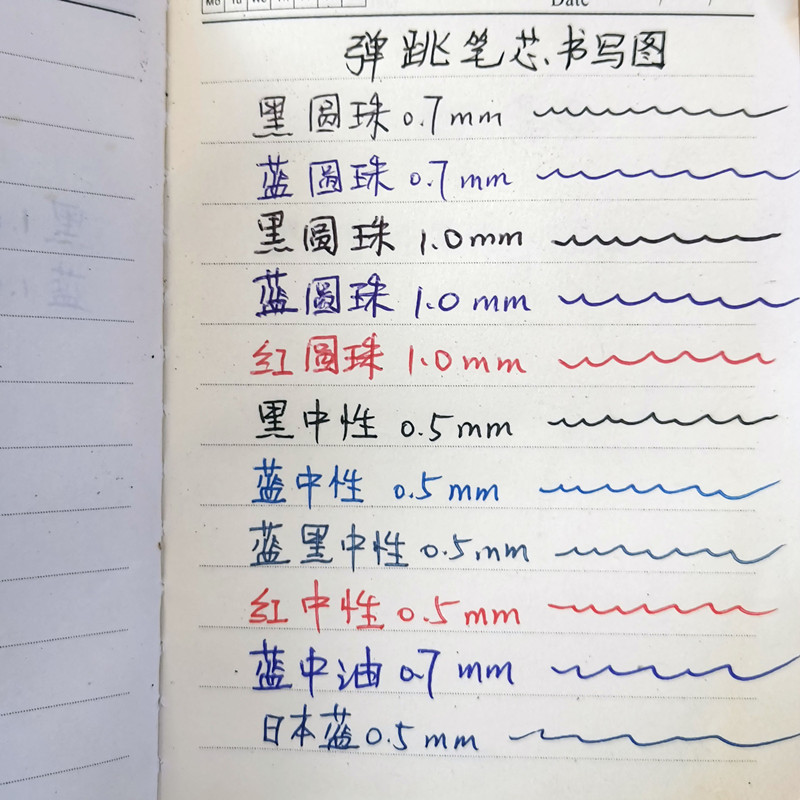 Date
弹跳笔芯书写图
黑圆珠 0.7mm
蓝圆珠 0.7mm
黑圆珠 1.0mm
蓝圆珠 1.0mm
红圆珠 1.0mm
黑中性 0.5mm
蓝中性 0.5mm
蓝黑中性 0.5mm
红中性 0.5mm
蓝中油 0.7mm
日本蓝 0.5mm